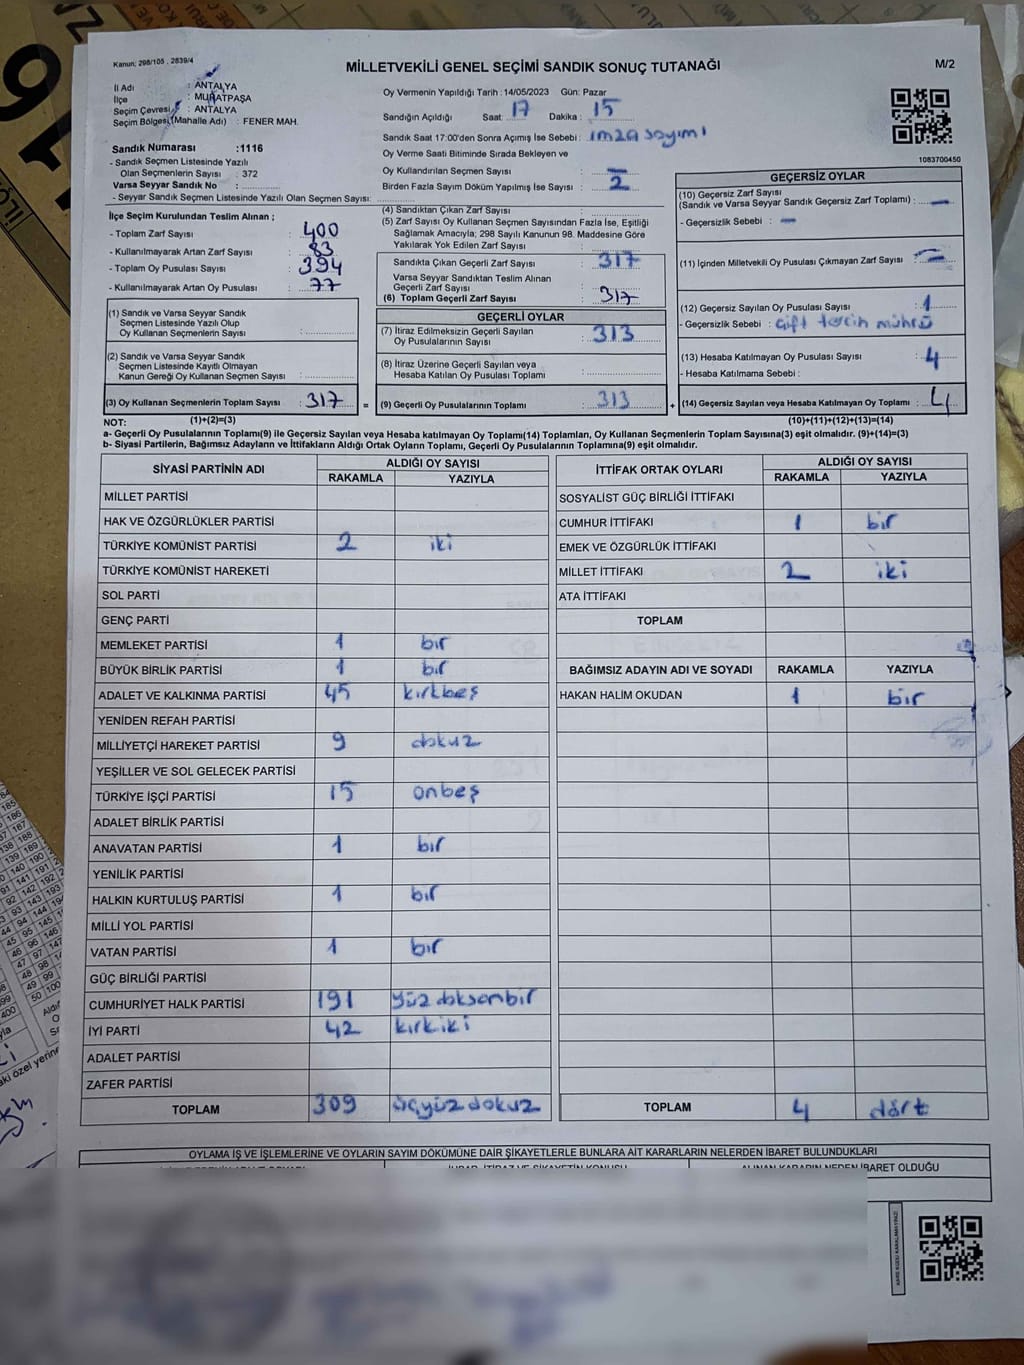 Kanun; 298/105 , 2839/4
MİLLETVEKİLİ GENEL SEÇİMİ SANDIK SONUÇ TUTANAĞI
M/2
İl Adı : ANTALYA
İlçe : MURATPAŞA
Seçim Çevresi : ANTALYA
Seçim Bölgesi(Mahalle Adı) : FENER MAH.
Oy Vermenin Yapıldığı Tarih : 14/05/2023 Gün: Pazar
Sandığın Açıldığı Saat: 17 Dakika : 15
Sandık Saat 17:00'den Sonra Açımış İse Sebebi : imza sayımı
Oy Verme Saati Bitiminde Sırada Bekleyen ve
Oy Kullandırılan Seçmen Sayısı : -
Birden Fazla Sayım Döküm Yapılmış İse Sayısı : 2
1083700450
Sandık Numarası :1116
- Sandık Seçmen Listesinde Yazılı
Olan Seçmenlerin Sayısı : 372
Varsa Seyyar Sandık No :
- Seyyar Sandık Seçmen Listesinde Yazılı Olan Seçmen Sayısı:
İlçe Seçim Kurulundan Teslim Alınan ;
- Toplam Zarf Sayısı : 400
- Kullanılmayarak Artan Zarf Sayısı : 83
- Toplam Oy Pusulası Sayısı : 394
- Kullanılmayarak Artan Oy Pusulası : 77
(1) Sandık ve Varsa Seyyar Sandık
Seçmen Listesinde Yazılı Olup
Oy Kullanan Seçmenlerin Sayısı :
(2) Sandık ve Varsa Seyyar Sandık
Seçmen Listesinde Kayıtlı Olmayan
Kanun Gereği Oy Kullanan Seçmen Sayısı :
(3) Oy Kullanan Seçmenlerin Toplam Sayısı : 317
(4) Sandıktan Çıkan Zarf Sayısı :
(5) Zarf Sayısı Oy Kullanan Seçmen Sayısından Fazla İse, Eşitliği
Sağlamak Amacıyla; 298 Sayılı Kanunun 98. Maddesine Göre
Yakılarak Yok Edilen Zarf Sayısı :
Sandıkta Çıkan Geçerli Zarf Sayısı : 317
Varsa Seyyar Sandıktan Teslim Alınan
Geçerli Zarf Sayısı :
(6) Toplam Geçerli Zarf Sayısı : 317
GEÇERLİ OYLAR
(7) İtiraz Edilmeksizin Geçerli Sayılan
Oy Pusulalarının Sayısı : 313
(8) İtiraz Üzerine Geçerli Sayılan veya
Hesaba Katılan Oy Pusulası Toplamı :
= (9) Geçerli Oy Pusulalarının Toplamı : 313
GEÇERSİZ OYLAR
(10) Geçersiz Zarf Sayısı
(Sandık ve Varsa Seyyar Sandık Geçersiz Zarf Toplamı) : -
- Geçersizlik Sebebi : -
(11) İçinden Milletvekili Oy Pusulası Çıkmayan Zarf Sayısı : -
(12) Geçersiz Sayılan Oy Pusulası Sayısı : 1
- Geçersizlik Sebebi : çift tercih mührü
(13) Hesaba Katılmayan Oy Pusulası Sayısı : 4
- Hesaba Katılmama Sebebi :
+ (14) Geçersiz Sayılan veya Hesaba Katılmayan Oy Toplamı : 4
NOT: (1)+(2)=(3)
(10)+(11)+(12)+(13)=(14)
a- Geçerli Oy Pusulalarının Toplamı(9) ile Geçersiz Sayılan veya Hesaba katılmayan Oy Toplam(14) Toplamları, Oy Kullanan Seçmenlerin Toplam Sayısına(3) eşit olmalıdır. (9)+(14)=(3)
b- Siyasi Partilerin, Bağımsız Adayların ve İttifakların Aldığı Ortak Oyların Toplamı, Geçerli Oy Pusulalarının Toplamına(9) eşit olmalıdır.
SİYASİ PARTİNİN ADI ALDIĞI OY SAYISI
RAKAMLA YAZIYLA
MİLLET PARTİSİ
HAK VE ÖZGÜRLÜKLER PARTİSİ
TÜRKİYE KOMÜNİST PARTİSİ 2 iki
TÜRKİYE KOMÜNİST HAREKETİ
SOL PARTİ
GENÇ PARTİ
MEMLEKET PARTİSİ 1 bir
BÜYÜK BİRLİK PARTİSİ 1 bir
ADALET VE KALKINMA PARTİSİ 45 kırkbeş
YENİDEN REFAH PARTİSİ
MİLLİYETÇİ HAREKET PARTİSİ 9 dokuz
YEŞİLLER VE SOL GELECEK PARTİSİ
TÜRKİYE İŞÇİ PARTİSİ 15 onbeş
ADALET BİRLİK PARTİSİ
ANAVATAN PARTİSİ 1 bir
YENİLİK PARTİSİ
HALKIN KURTULUŞ PARTİSİ 1 bir
MİLLİ YOL PARTİSİ
VATAN PARTİSİ 1 bir
GÜÇ BİRLİĞİ PARTİSİ
CUMHURİYET HALK PARTİSİ 191 yüz doksanbir
İYİ PARTİ 42 kırkiki
ADALET PARTİSİ
ZAFER PARTİSİ
TOPLAM 309 üçyüz dokuz
İTTİFAK ORTAK OYLARI ALDIĞI OY SAYISI
RAKAMLA YAZIYLA
SOSYALIST GÜÇ BİRLİĞİ İTTİFAKI
CUMHUR İTTİFAKI 1 bir
EMEK VE ÖZGÜRLÜK İTTİFAKI
MİLLET İTTİFAKI 2 iki
ATA İTTİFAKI
TOPLAM
BAĞIMSIZ ADAYIN ADI VE SOYADI RAKAMLA YAZIYLA
HAKAN HALİM OKUDAN 1 bir
TOPLAM 4 dört
OYLAMA İŞ VE İŞLEMLERİNE VE OYLARIN SAYIM DÖKÜMÜNE DAİR ŞİKAYETLERLE BUNLARA AİT KARARLARIN NELERDEN İBARET BULUNDUKLARI
ALINAN KARARIN NEDEN İBARET OLDUĞU